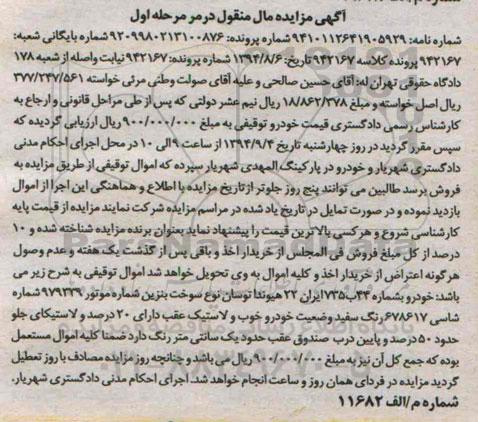 آگهی مزایده مال منقول درمر مرحله اول
شماره نامه: ۹۴۱۰۱۱۲۶۴۱۹۰۵۹۲۹ شماره پرونده: ۹۲۰۹۹۸۰۲۱۳۱۰۰۸۷۶ شماره بایگانی شعبه:
۹۴۲۱۶۷ پرونده کلاسه ۹۴۲۱۶۷ تاریخ: ۱۳۹۴/۸/۶ شماره پرونده: ۹۴۲۱۶۷ نیابت واصله از شعبه ۱۷۸
دادگاه حقوقی تهران له: آقای حسین صالحی و علیه آقای صولت وطنی مرئی خواسته ۳۷۷/۲۴۷/۵۶۱
ریال اصل خواسته و مبلغ ۱۸/۸۶۲/۳۷۸ ریال نیم عشر دولتی که پس از طی مراحل قانونی و ارجاع به
کارشناس رسمی دادگستری قیمت خودرو توقیفی به مبلغ ۹۰۰/۰۰۰/۰۰۰ ریال ارزیابی گردیده که
سپس مقرر گردید در روز چهارشنبه تاریخ ۱۳۹۴/۹/۴ از ساعت ۹ الی ۱۰ در محل اجرای احکام مدنی
دادگستری شهریار و خودرو در پارکینگ المهدی شهریار سپرده که اموال توقیفی از طریق مزایده به
فروش برسد طالبین می توانند پنج روز جلوتر از تاریخ مزایده با اطلاع و هماهنگی این اجرا از اموال
بازدید نموده و در صورت تمایل در تاریخ یاد شده در مراسم مزایده شرکت نمایند مزایده از قیمت پایه
کارشناسی شروع و هر کسی بالاترین قیمت را پیشنهاد نماید بعنوان برنده مزایده شناخته شده و ۱۰
درصد از کل مبلغ فروش فی المجلس از خریدار اخذ و باقی پس از گذشت یک هفته و عدم وصول
هرگونه اعتراض از خریدار اخذ و کلیه اموال به وی تحویل خواهد شد اموال توقیفی به شرح زیر می
باشد: خودرو بشماره ۴۳ب۷۳۵ ایران ۲۲ هیوندا توسان نوع سوخت بنزین شماره موتور ۹۷۹۳۳۹ شماره
شاسی ۶۷۸۶۱۷ رنگ سفید وضعیت خودرو خوب و لاستیک عقب دارای ۲۰ درصد و لاستیکای جلو
حدود ۵۰ درصد و پایین درب صندوق عقب حدود یک سانتی متر رنگ دارد ضمنا کلیه اموال مستعمل
بوده که جمع کل آن نیز به مبلغ ۹۰۰/۰۰۰/۰۰۰ ریال می باشد و چنانچه روز مزایده مصادف با روز تعطیل
گردید مزایده در فردای همان روز و ساعت انجام خواهد شد. اجرای احکام مدنی دادگستری شهریار.
شماره م/الف ۱۱۶۸۲